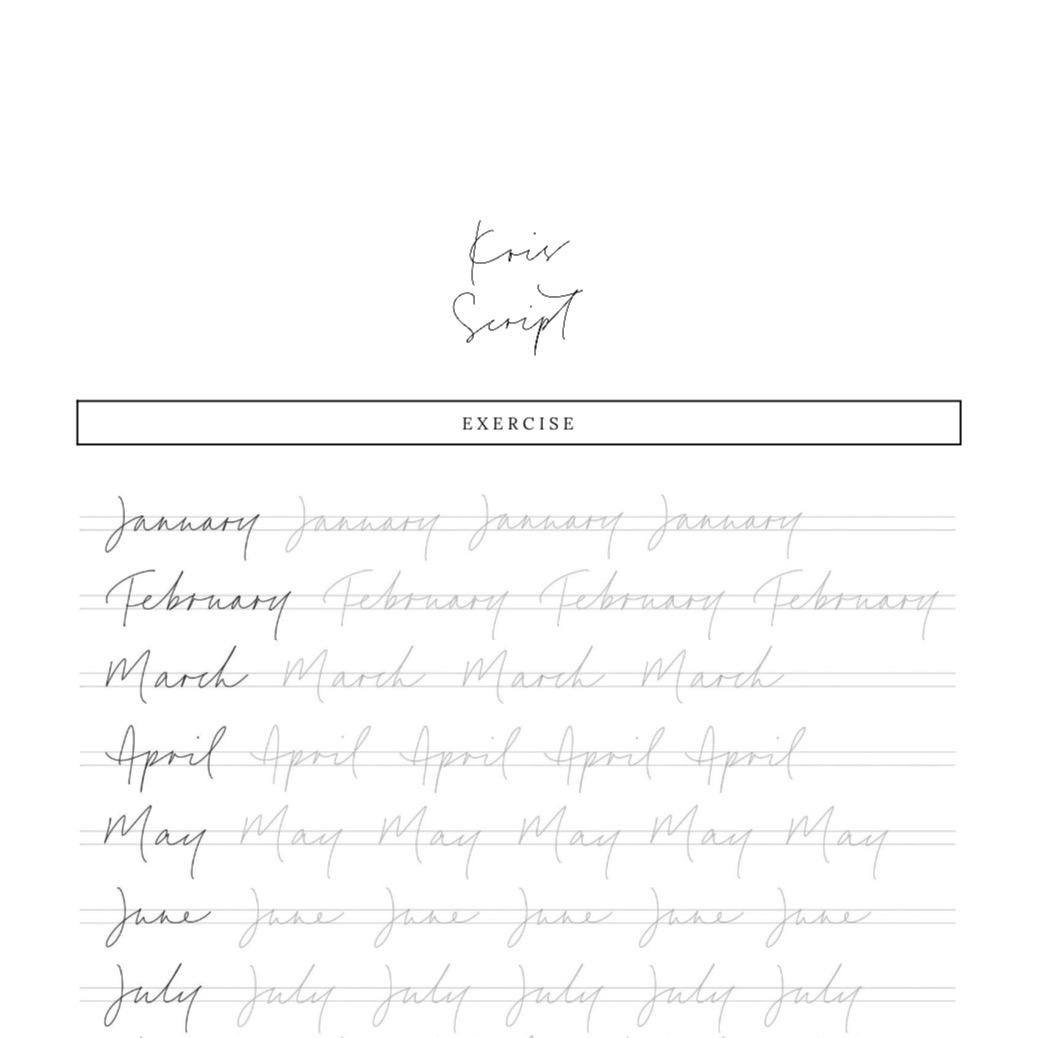 Kris
Script
EXERCISE
January January January January
February February February February
March March March March
April April April April April
May May May May May May
June June June June June June
July July July July July July